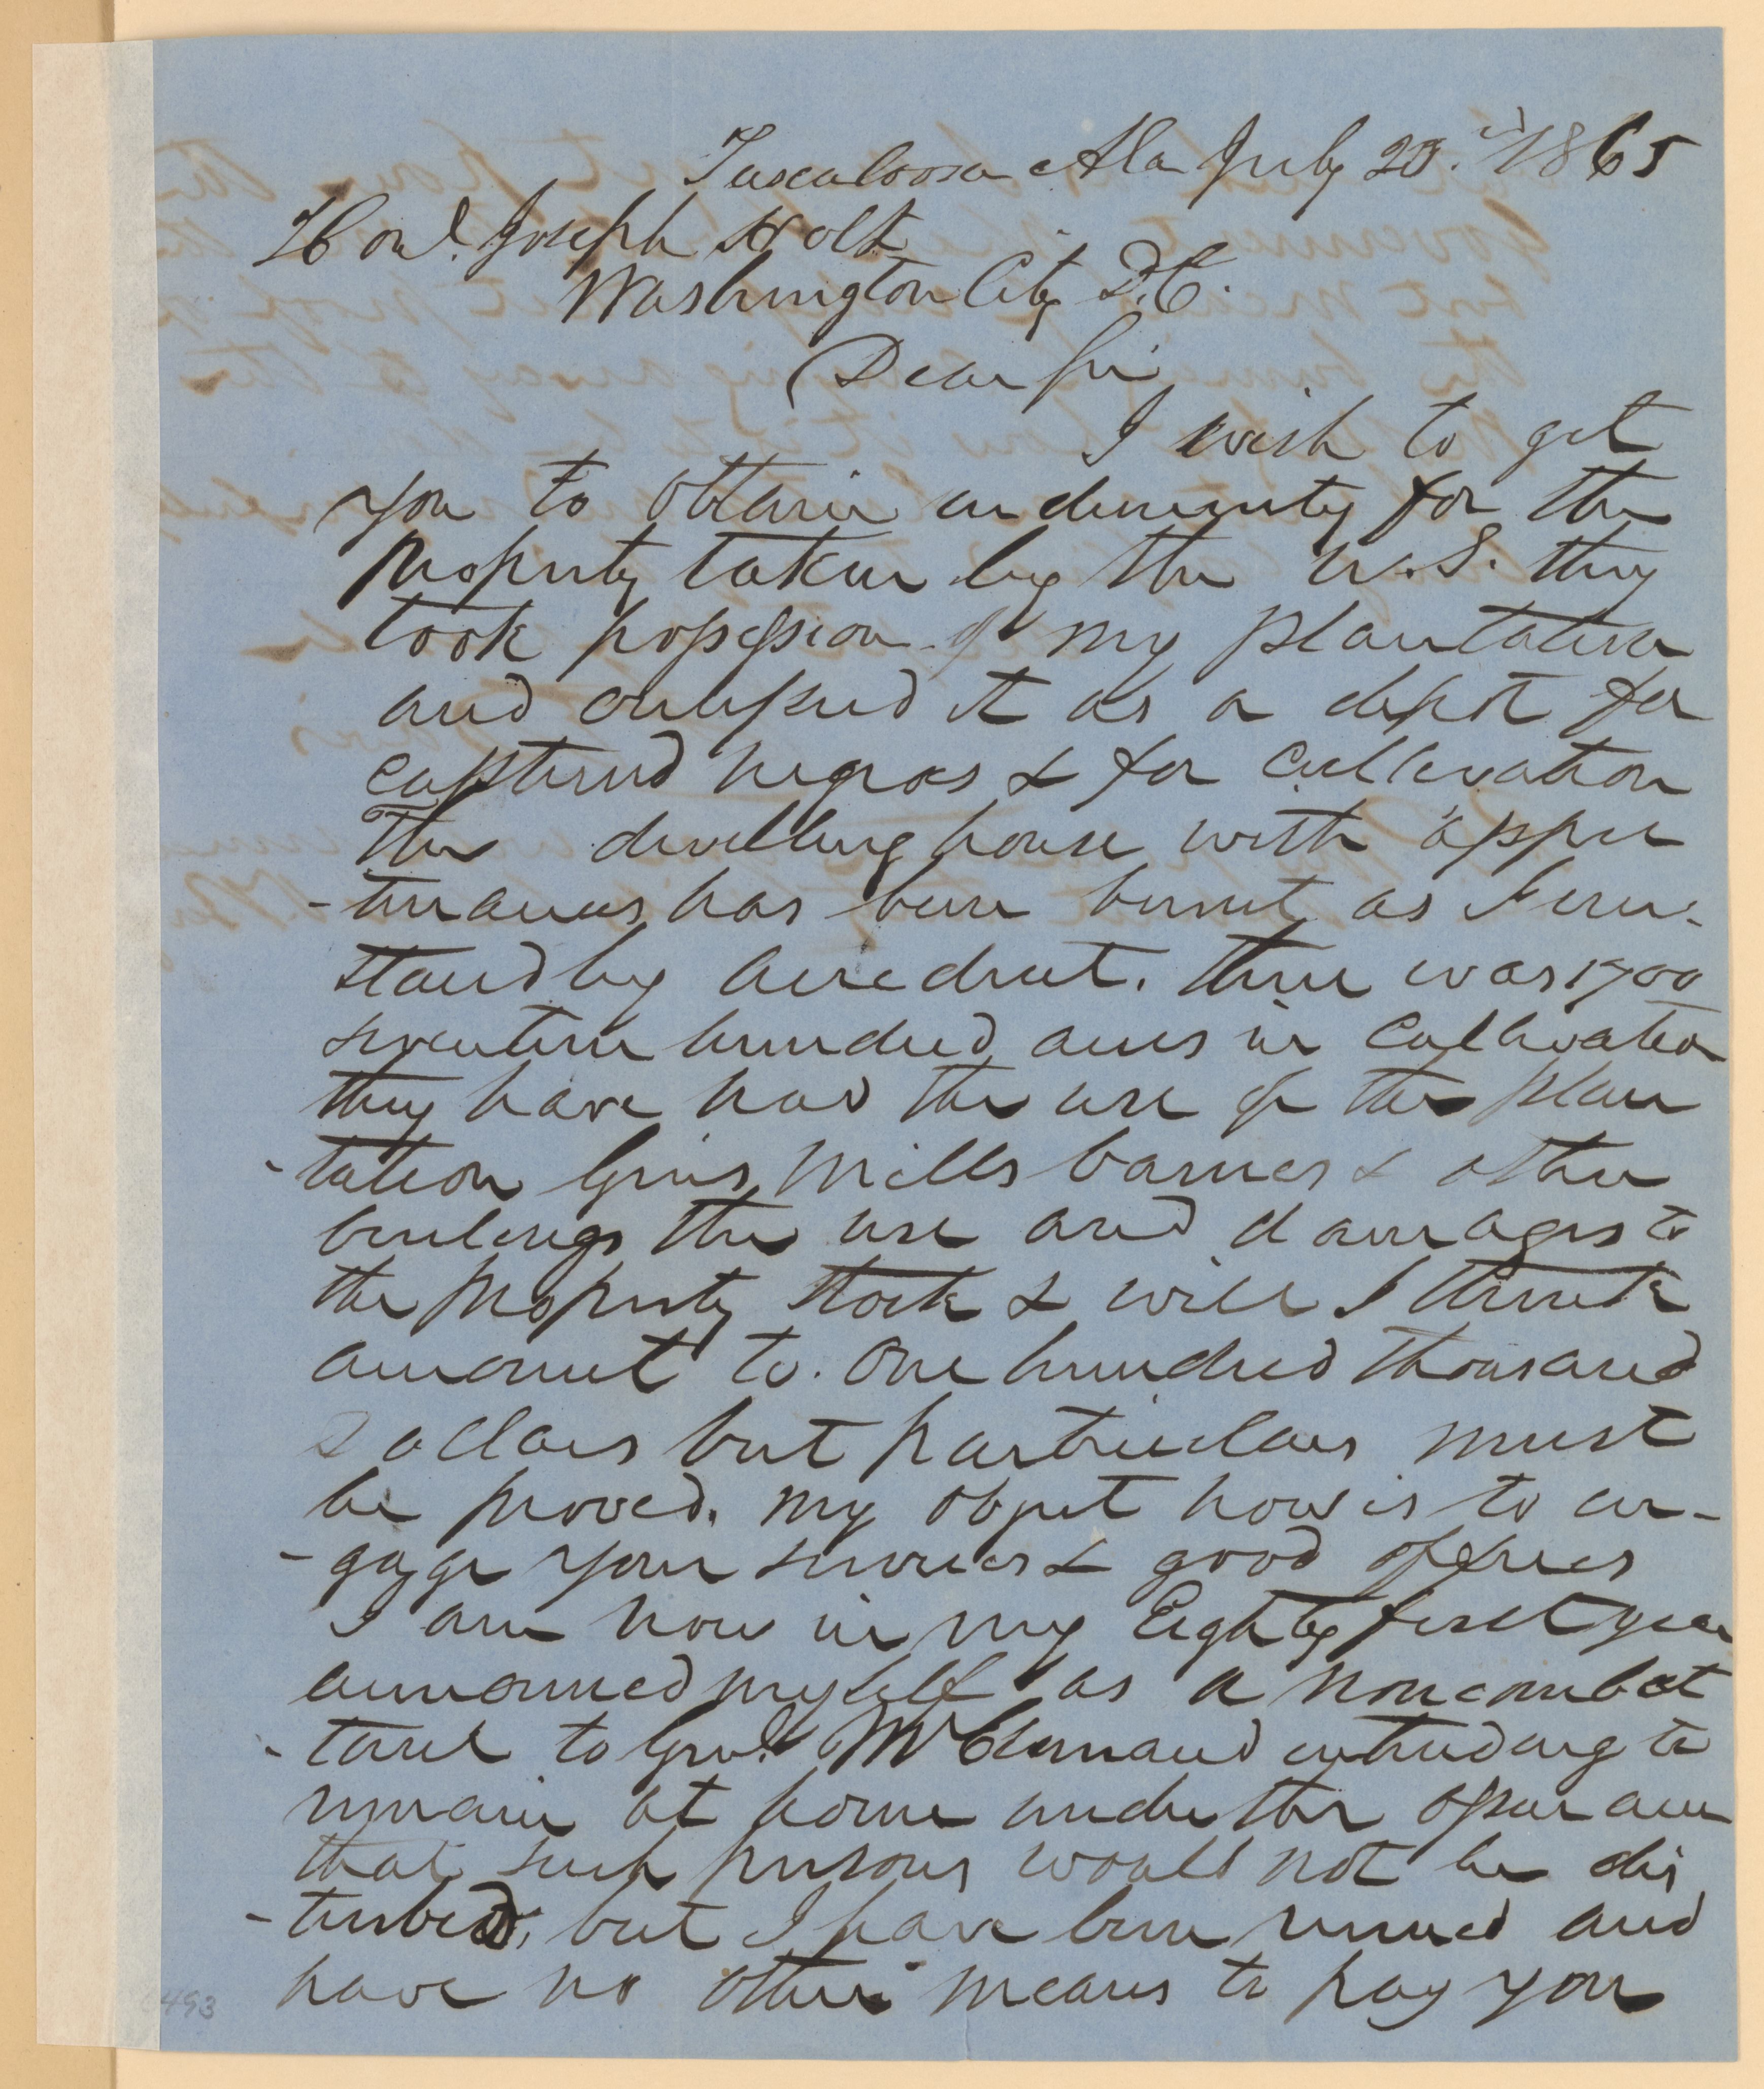 Tuscaloosa Ala July 20. 1865
Honl. Joseph Holt
Washington City D.C.
Dear Sir
I wish to get
you to obtain indemnity for the
property taken by the U.S. they
took possession of my plantation
and ocupied it as a depot for
captured negros & for cultivation
The dwelling house with appur
-tinances has been burnt as I un-
stand by accedent. there was 1700
seventeen hundred acres in cultivation
they have had the use of the plan
-tation Gins Mills barnes & other
buildings the use and damages to
the property stock & will I think
amount to. One hundred thousand
Dollars but particulars must
be proved. my object now is to en-
-gage your services & good offices
I am now in my Eighty first year
announced myself as a noncombat
-tant to Genl. McClernand intending to
remain at home under the
that such persons would not be dis
-turbed, but I have been ruined and
have no other means to pay you
493